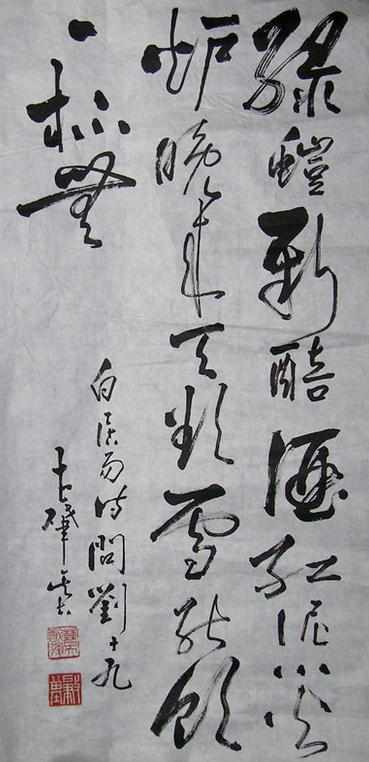 綠螘新醅酒紅泥小火
炉晚来天欲雪能飲
一杯無
白居易詩問劉十九